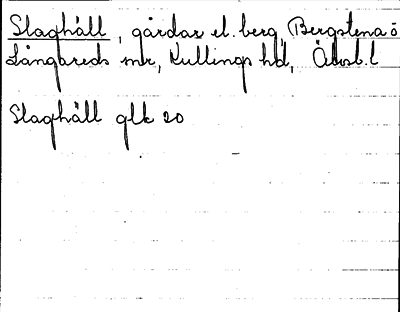 Slaghåll, gårdar el. berg, Bergstena ö
Långareds mr, Kullings hd, Älvsb. l
Slaghåll glk 20